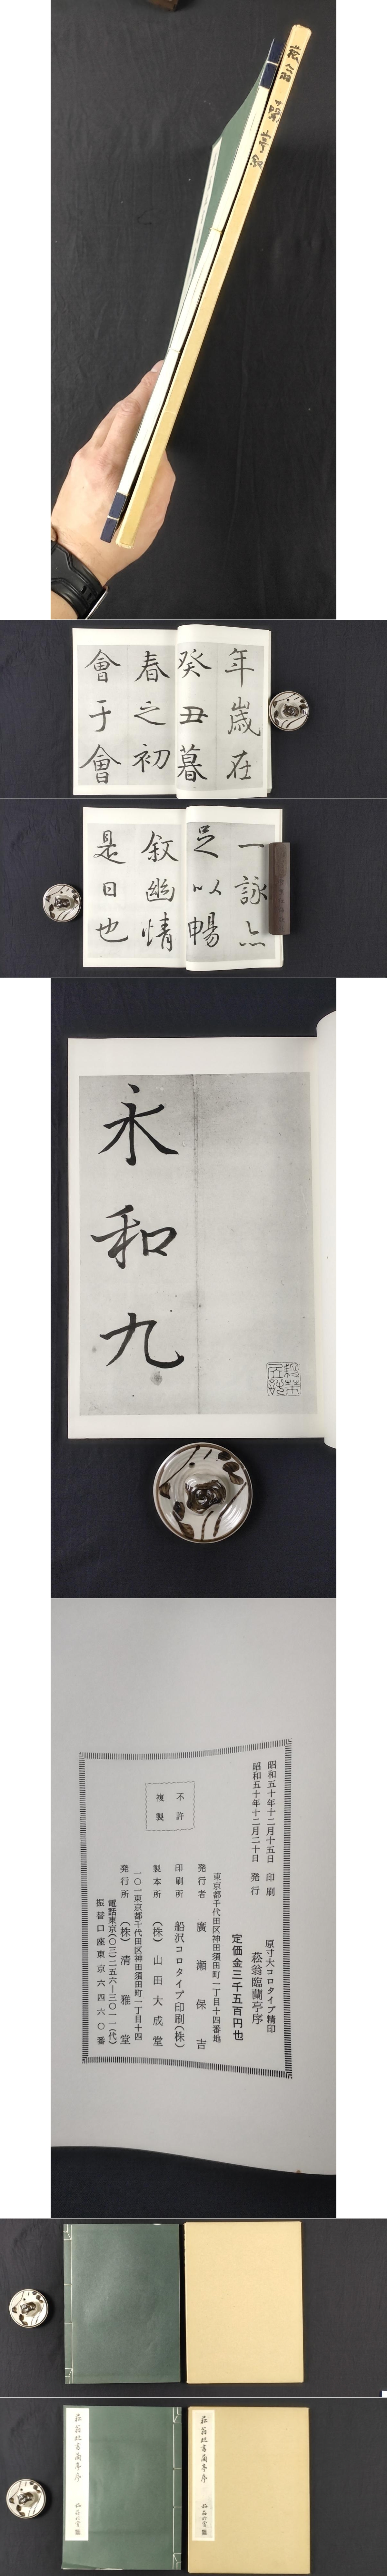 菘翁
蘭亭叙
年歳在
癸丑暮
春之初
會于會
一詠亦
足以暢
叙幽情
是日也
永和九
昭和五十年十二月十五日 印刷
昭和五十年十二月二十日 発行
原寸大コロタイプ精印
菘翁臨蘭亭序
定価金三千五百円也
東京都千代田区神田須田町一丁目十四番地
発行者 廣瀬保吉
印刷所 船沢コロタイプ印刷(株)
製本所 (株)山田大成堂
一〇一東京都千代田区神田須田町一丁目十四
発行所 (株)清雅堂
電話東京(〇三)二五六―三〇一一(代)
振替口座東京六四六〇番
不許
複製
菘翁臨書蘭亭序
菘翁臨書蘭亭序